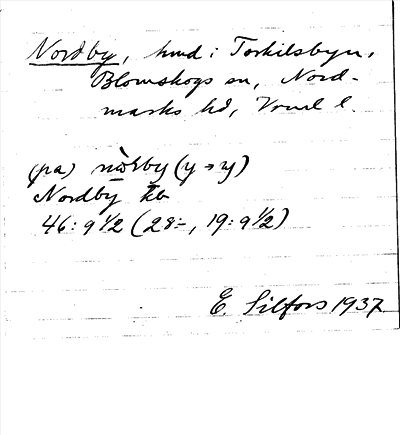 Nordby, hmd i Torkilsbyn,
Blomskogs sn, Nord-
marks hd, Vrml l.
(på) nòrby (y → y)
Nordby Kb
46: 9 1/2 (28-, 19: 9 1/2)
E. Silfors 1937